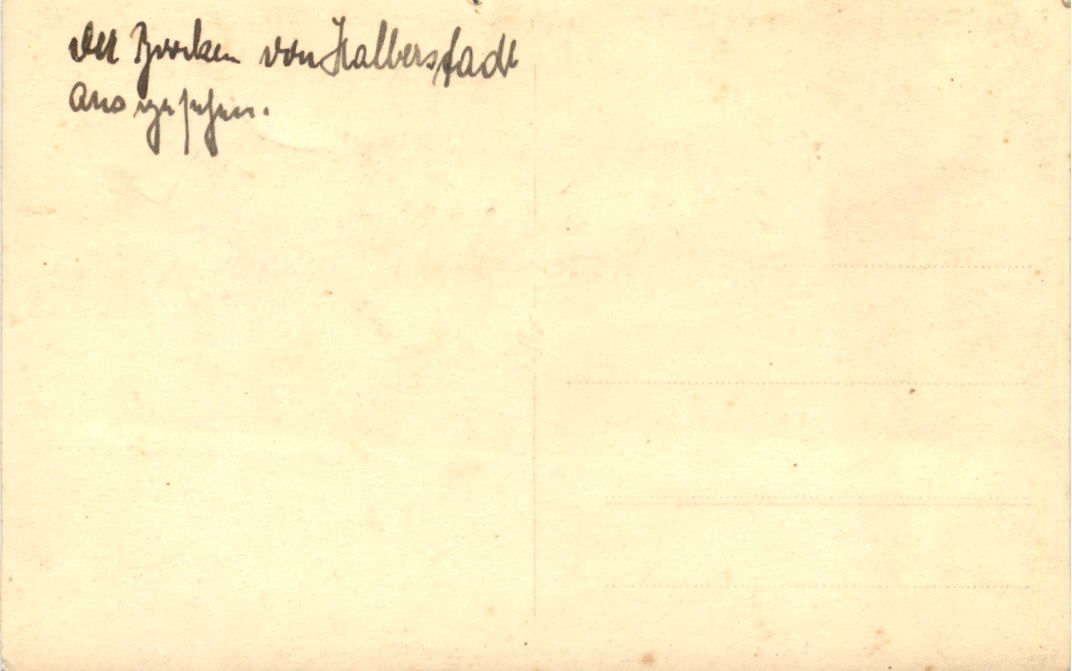 Der Brocken von Halberstadt
aus gesehen.